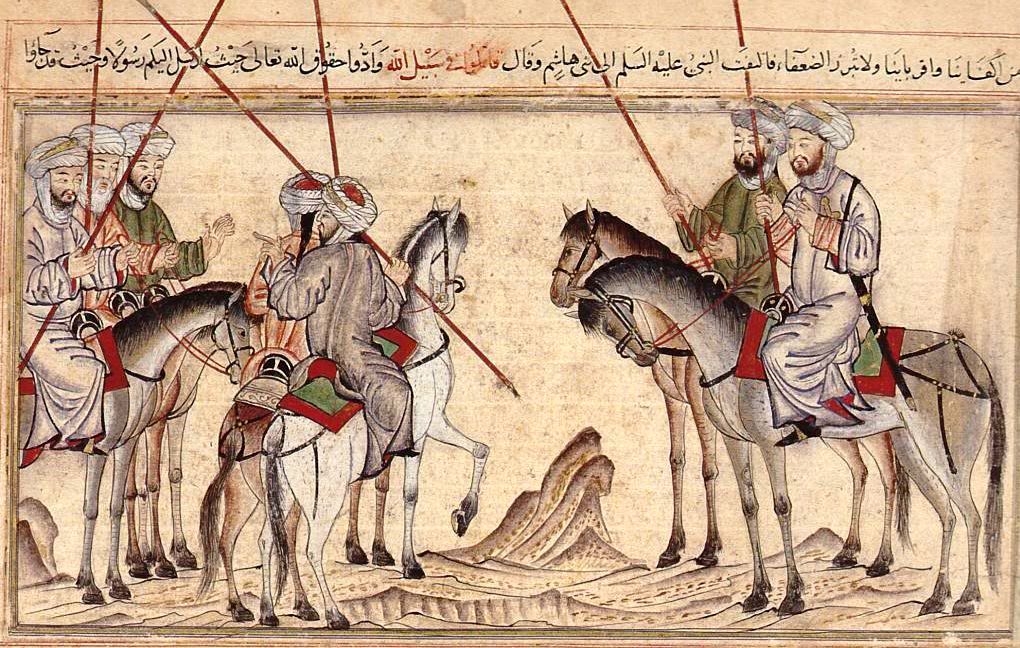 من اكفاينا واقرباينا ولا نبرز الضعفاء فالتفت النبي عليه السلم الى بنى هاشم وقال قاتلوا في سبيل الله وادوا حقوق الله تعالى حيث ارسل اليكم رسولا وحيث قد جاوا